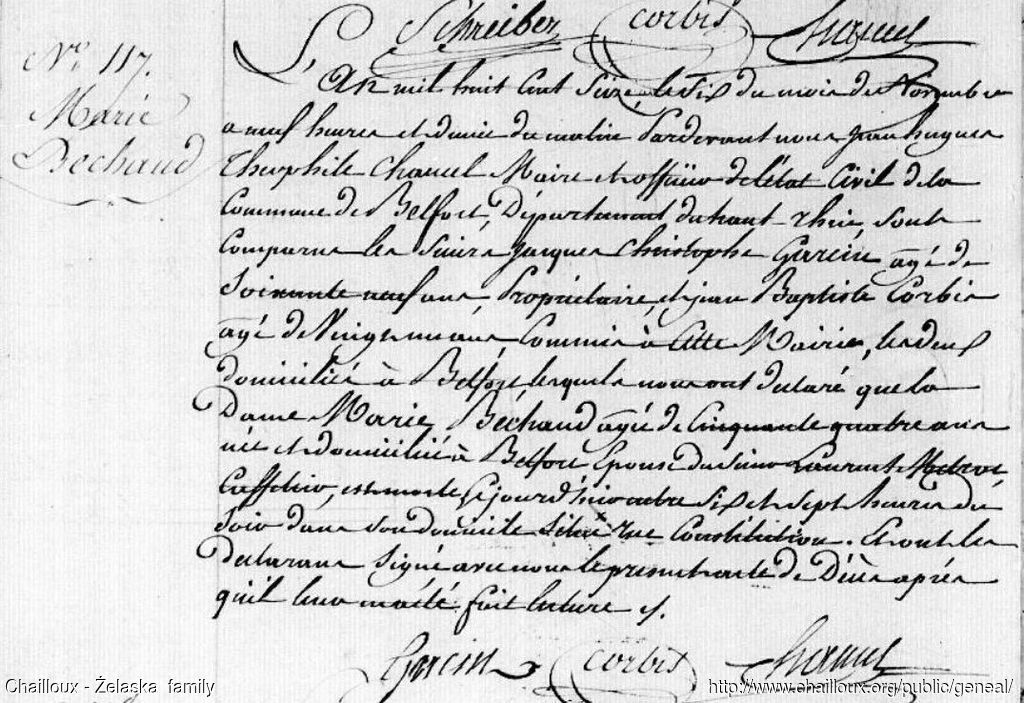 Schreiber corbis Chauvel
N.o 117.
Marie
Bechaud
L'An mil huit cent Seize, le Six du mois de Novembre
a neuf heures et demie du matin Pardevant nous jean hugues
Theophile Chauvel Maire et officier de l'état Civil de la
Commune de Belfort, Département du haut-rhin, sont
Comparus les Sieurs Jacques Christophe Garcin agé de
Soixante neuf ans, Propriétaire, et jean Baptiste Corbis
agé de Vingt ans, Commis à cette Mairie, les deux
domiciliés à Belfort, lesquels nous ont declaré que la
Dame Marie Bechaud agée de Cinquante quatre ans
née et domiciliée à Belfort Epouse du Sieur Laurent
Caffetier, est morte, entre Six et Sept heures du
soir dans son domicile Situé rue Constitution. Et ont les
declarans Signé avec nous le present acte de Décès après
qu'il leur en a été fait lecture
Garcin corbis Chauvel
Chailloux - Żelaska family
http://www.chailloux.org/public/geneal/